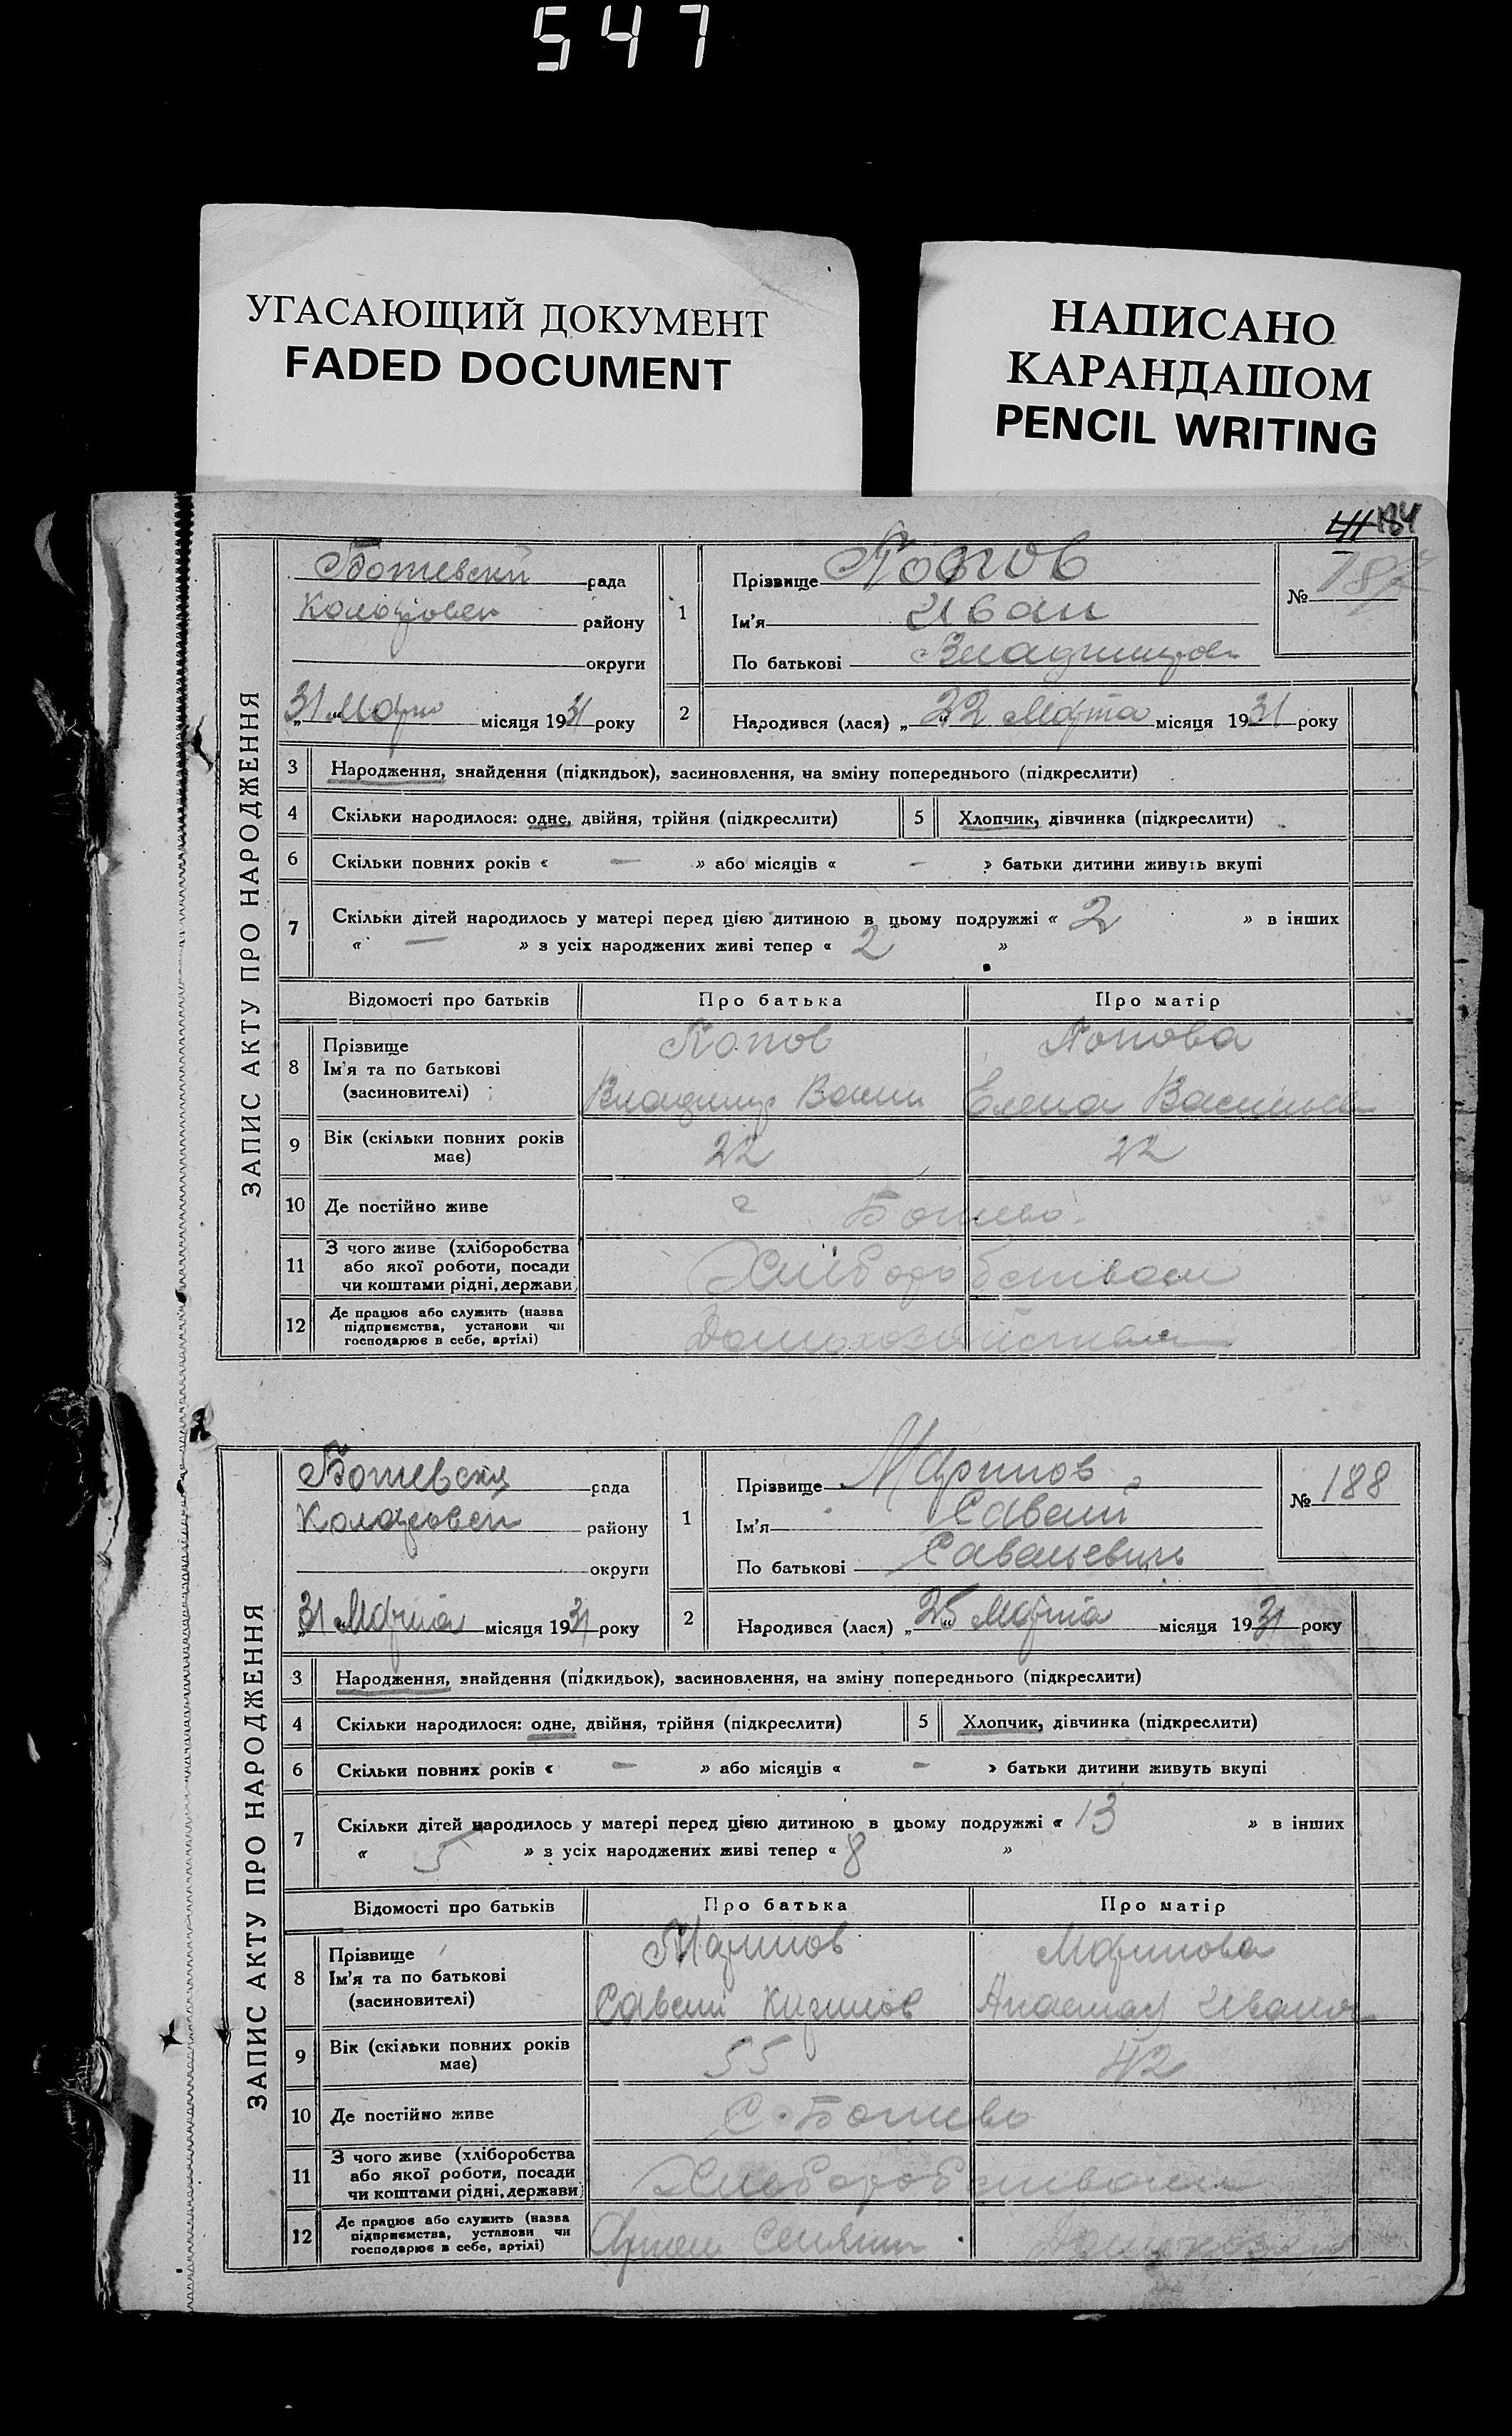 547
УГАСАЮЩИЙ ДОКУМЕНТ
FADED DOCUMENT
НАПИСАНО
КАРАНДАШОМ
PENCIL WRITING
184
ЗАПИС АКТУ ПРО НАРОДЖЕННЯ
Ботевский рада
Коларовск району
округи
31 Март місяця 1931 року
1
Прізвище Попов
Ім'я Иван
По батькові Владимиров
№ 187
2 Народився (лася) „22 Марта місяця 1931 року
3 Народження, знайдення (підкидьок), засиновлення, на зміну попереднього (підкреслити)
4 Скільки народилося: одне, двійня, трійня (підкреслити) 5 Хлопчик, дівчинка (підкреслити)
6 Скільки повних років « — » або місяців « — » батьки дитини живуть вкупі
7 Скільки дітей народилось у матері перед цією дитиною в цьому подружжі « 2 » в інших
« — » з усіх народжених живі тепер « 2 »
Відомості про батьків Про батька Про матір
8 Прізвище Попов Попова
Ім'я та по батькові
(засиновителі) Владимир Васил Елена Васильев
9 Вік (скільки повних років має) 22 22
10 Де постійно живе с Ботево
11 З чого живе (хліборобства
або якої роботи, посади
чи коштами рідні, держави) Хліборобством
12 Де працює або служить (назва
підприємства, установи чи
господарює в себе, артілі)
ЗАПИС АКТУ ПРО НАРОДЖЕННЯ
Ботевска рада
Коларовск району
округи
31 Марта місяця 1931 року
1
Прізвище Маринов
Ім'я Савелий
По батькові Савельевич
№ 188
2 Народився (лася) „25 Марта місяця 1931 року
3 Народження, знайдення (підкидьок), засиновлення, на зміну попереднього (підкреслити)
4 Скільки народилося: одне, двійня, трійня (підкреслити) 5 Хлопчик, дівчинка (підкреслити)
6 Скільки повних років « — » або місяців « — » батьки дитини живуть вкупі
7 Скільки дітей народилось у матері перед цією дитиною в цьому подружжі « 13 » в інших
« 5 » з усіх народжених живі тепер « 8 »
Відомості про батьків Про батька Про матір
8 Прізвище Маринов Маринова
Ім'я та по батькові
(засиновителі) Савелий Иванов
9 Вік (скільки повних років має) 55 42
10 Де постійно живе С. Ботево
11 З чого живе (хліборобства
або якої роботи, посади
чи коштами рідні, держави) Хлеборобством
12 Де працює або служить (назва
підприємства, установи чи
господарює в себе, артілі)